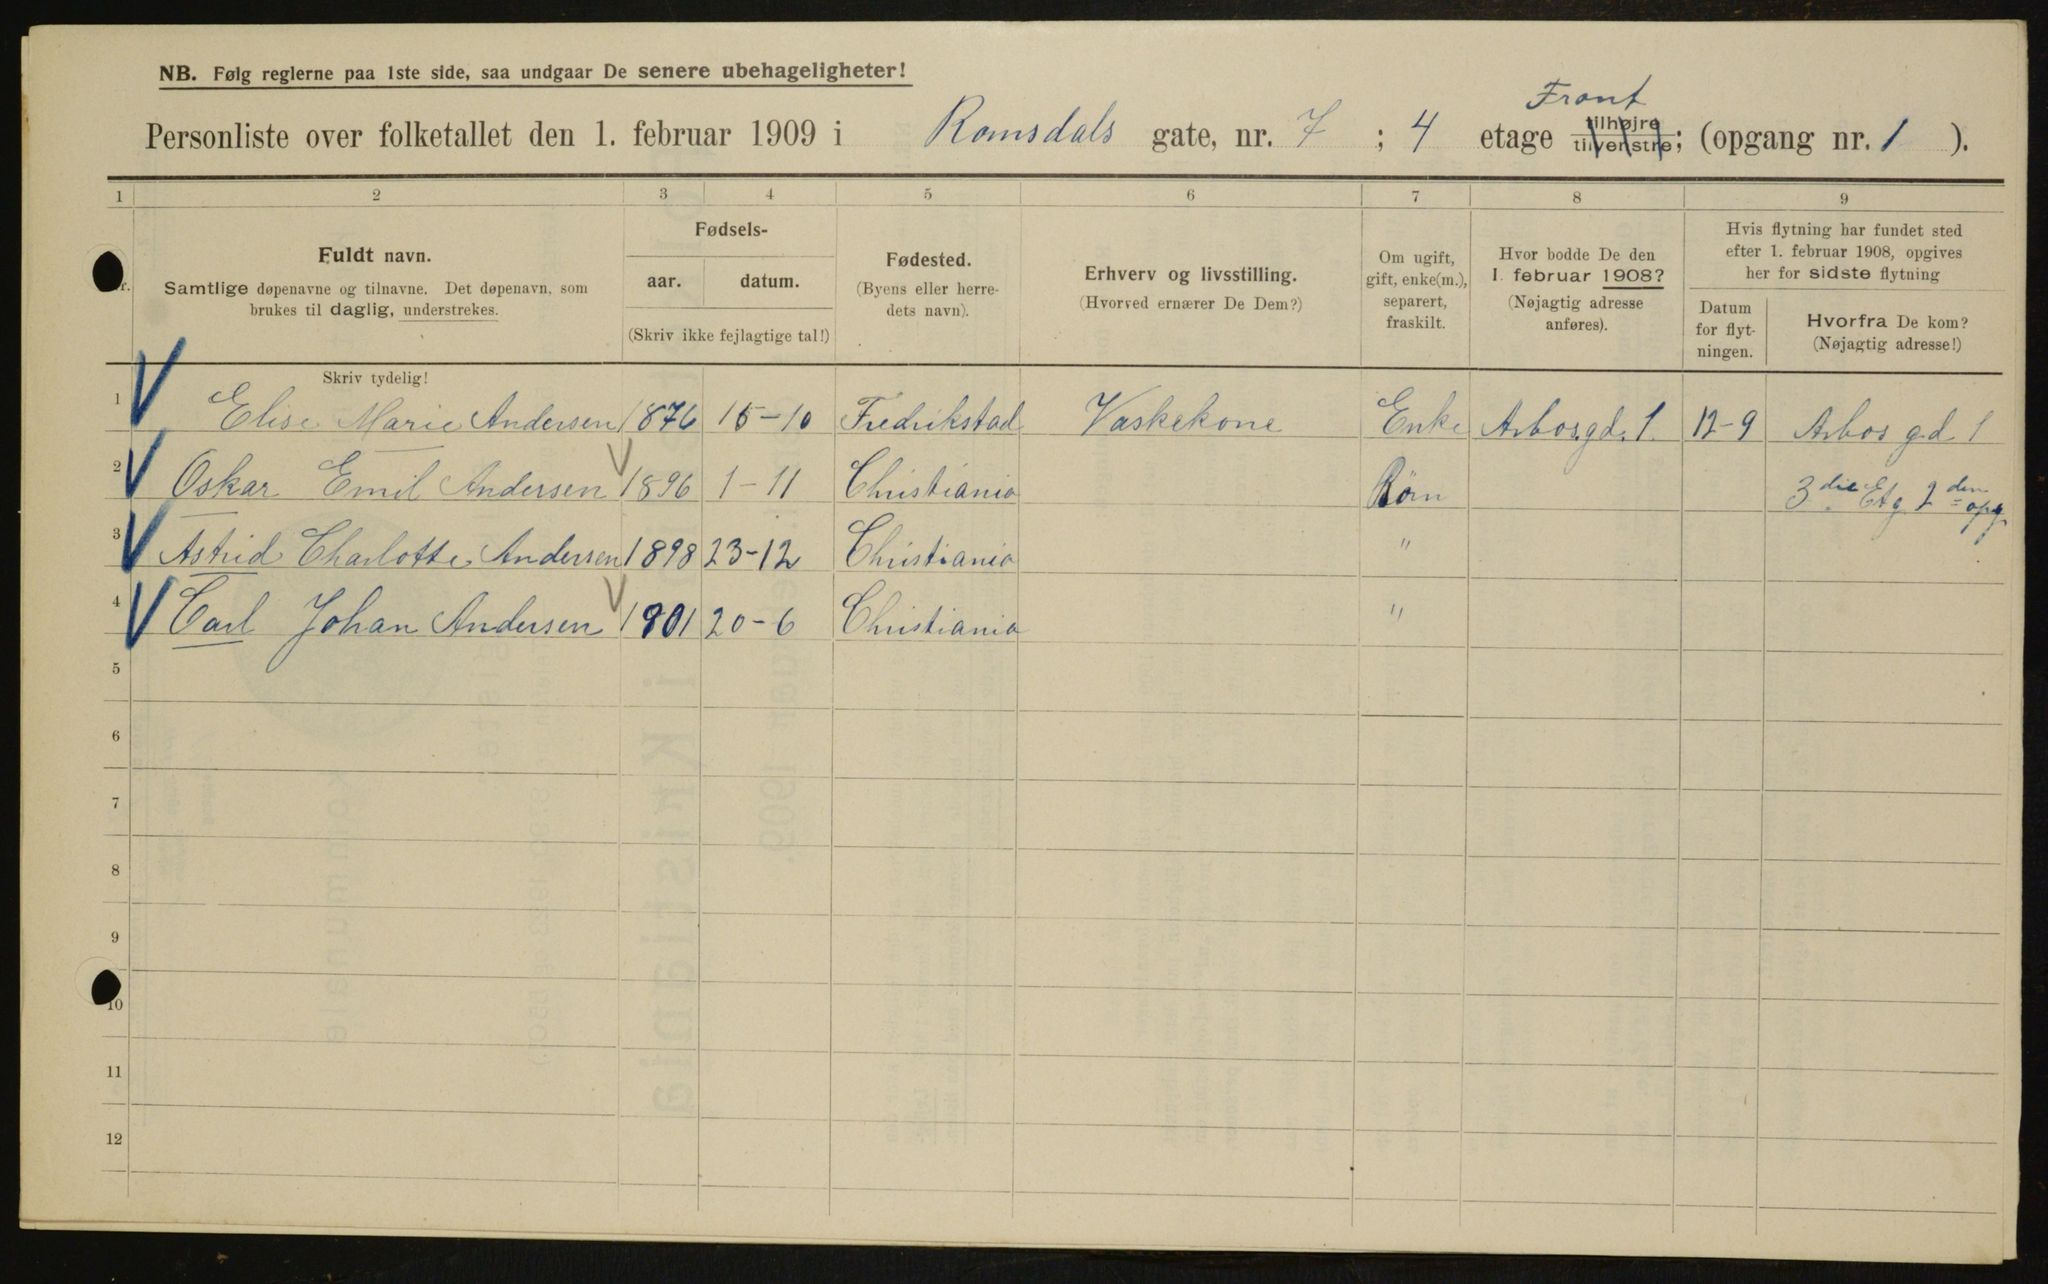 NB. Følg reglerne paa 1ste side, saa undgaar De senere ubehageligheter!
Front
Personliste over folketallet den 1. februar 1909 i Romsdals gate, nr. 7 ; 4 etage tilhøjre tilvenstre; (opgang nr. 1 ).
1 2 3 4 5 6 7 8 9
Fuldt navn.
Samtlige døpenavne og tilnavne. Det døpenavn, som
brukes til daglig, understrekes.
Skriv tydelig!
Fødsels-
aar. datum.
(Skriv ikke fejlagtige tal!)
Fødested.
(Byens eller herre-
dets navn).
Erhverv og livsstilling.
(Hvorved ernærer De Dem?)
Om ugift,
gift, enke(m.),
separert,
fraskilt.
Hvor bodde De den
1. februar 1908?
(Nøjagtig adresse
anføres).
Hvis flytning har fundet sted
efter 1. februar 1908, opgives
her for sidste flytning
Datum
for flyt-
ningen.
Hvorfra De kom?
(Nøjagtig adresse!)
1 Elise Marie Andersen 1876 15-10 Fredrikstad Vaskekone Enke Arbos.gd. 1 12-9 Arbos gd 1
2 Oskar Emil Andersen 1896 1-11 Christiania Börn 3die Etg 2den opg
3 Astrid Charlotte Andersen 1898 23-12 Christiania "
4 Carl Johan Andersen 1901 20-6 Christiania "
5
6
7
8
9
10
11
12